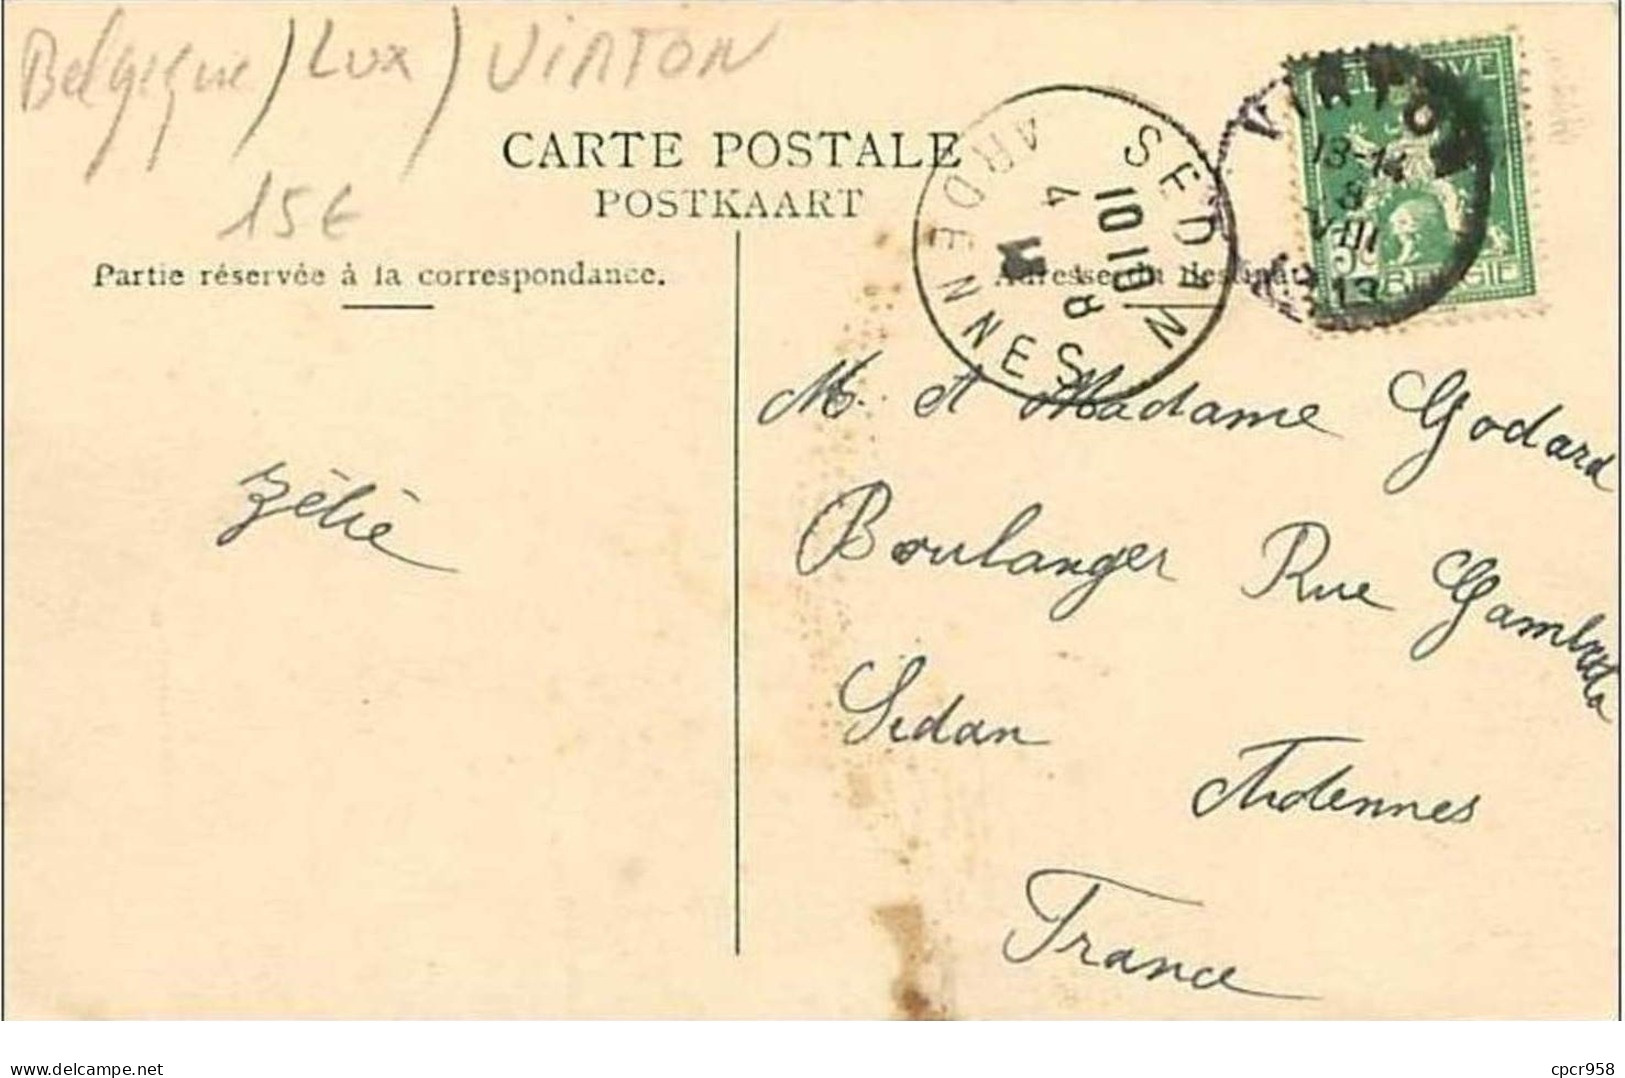 Belgique / Lux / VIRTON
15€
CARTE POSTALE
POSTKAART
Partie réservée à la correspondance.
Adresse du destinataire
SEDAN
ARDENNES
VIRTON
13-14
8
VIII
1913
BELGIE
M. et Madame Godard
Boulanger Rue Gambetta
Sedan
Ardennes
France
Zélie
www.delcampe.net
cpcr958